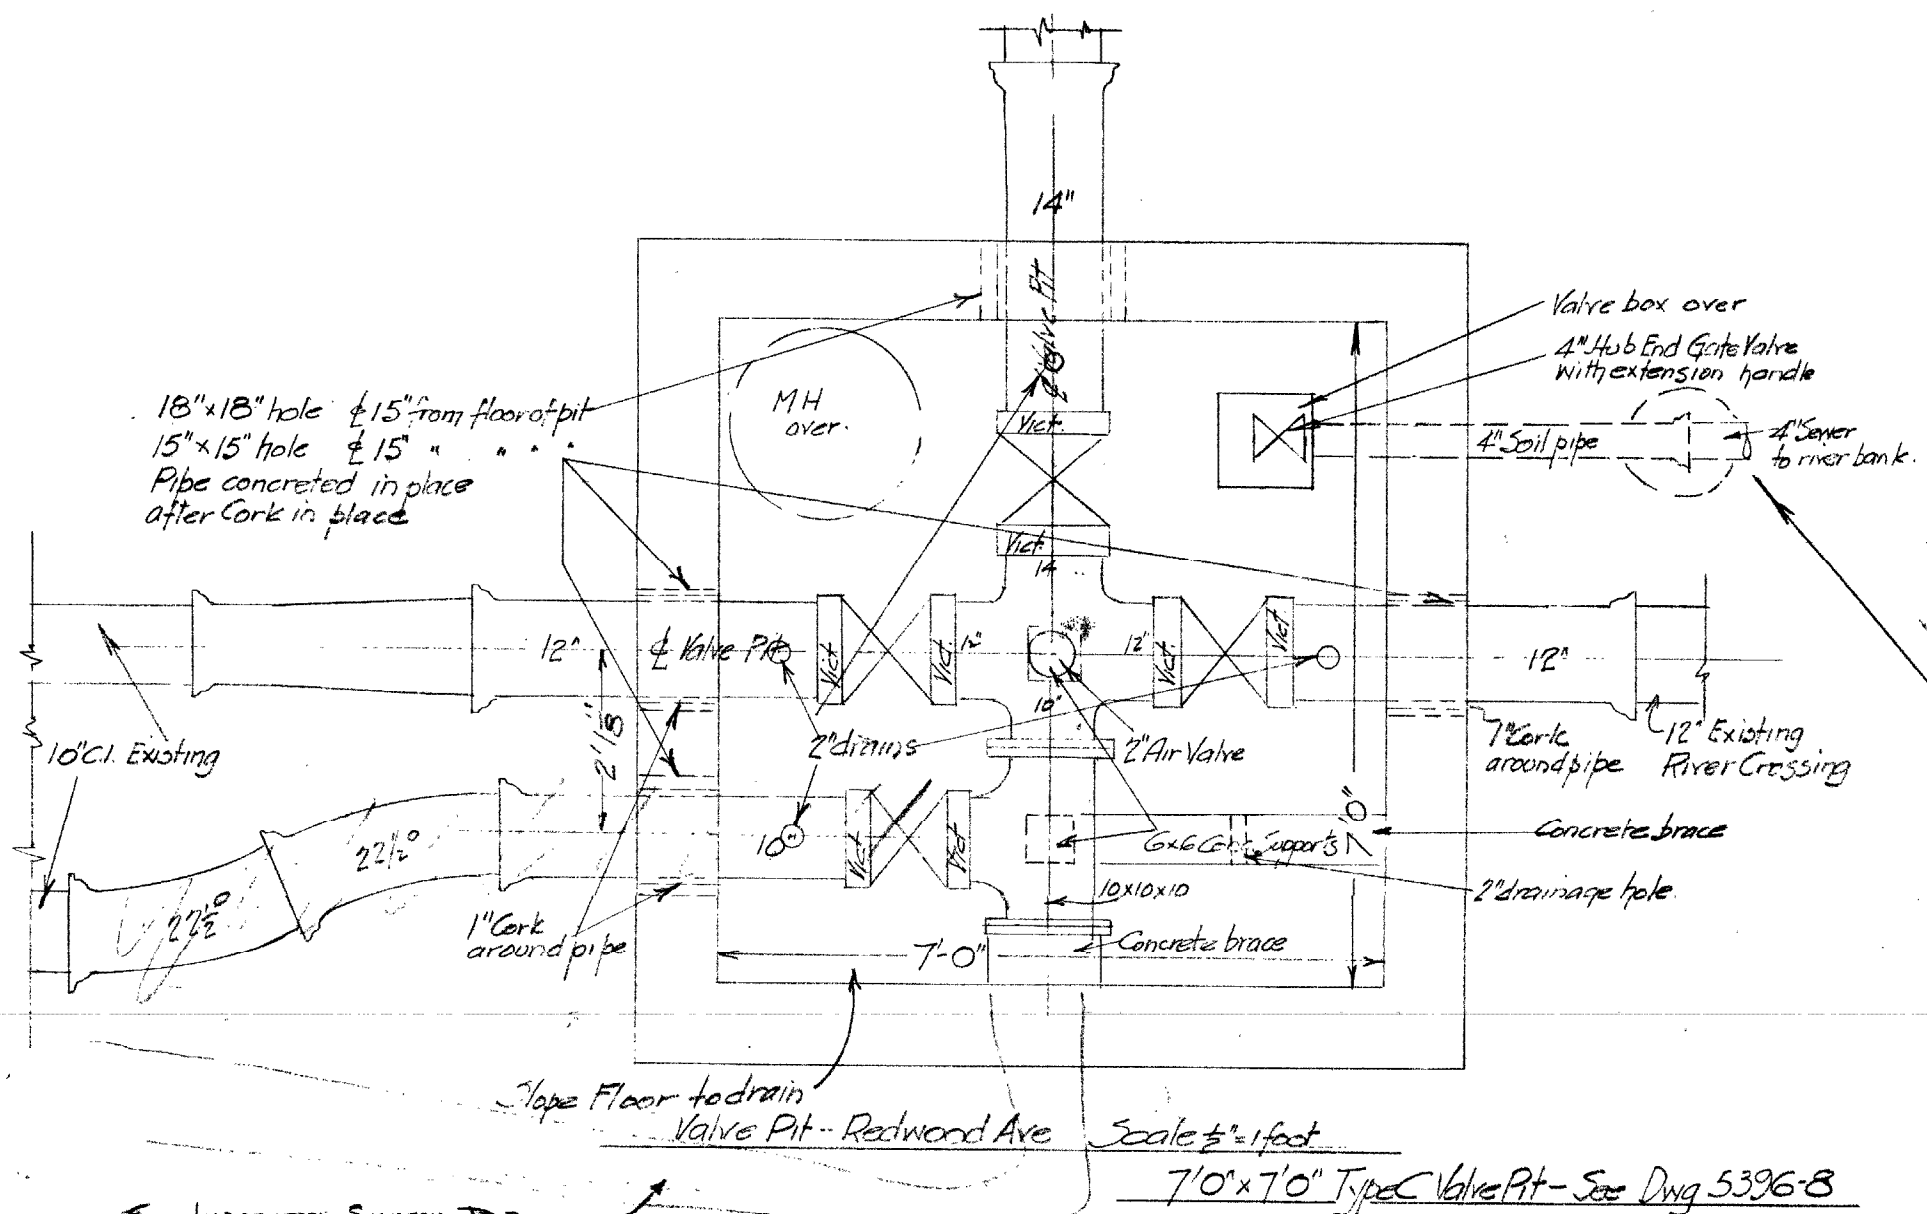 14"
℄ Valve Pit
Valve box over
4" Hub End Gate Valve
with extension handle
18"x18" hole ℄ 15" from floor of pit
15"x15" hole ℄ 15" " " " "
Pipe concreted in place
after Cork in place
MH
over.
Vict.
4" Soil pipe
4" Sewer
to river bank.
Vict.
14
12"
℄ Valve Pit
Vict
Vict
12"
12"
Vict
Vict
12"
10"
10" C.I. Existing
2' 1⅛"
2" drains
2" Air Valve
1" Cork
around pipe
12" Existing
River Crossing
22½°
22½°
10"
Vict
Vict
6x6 Conc Supports
7'0"
Concrete brace
10x10x10
2" drainage hole.
1" Cork
around pipe
7'-0"
Concrete brace
Slope Floor to drain
Valve Pit - Redwood Ave Scale ½" = 1 foot
7'0" x 7'0" Type C Valve Pit - See Dwg 5396-8